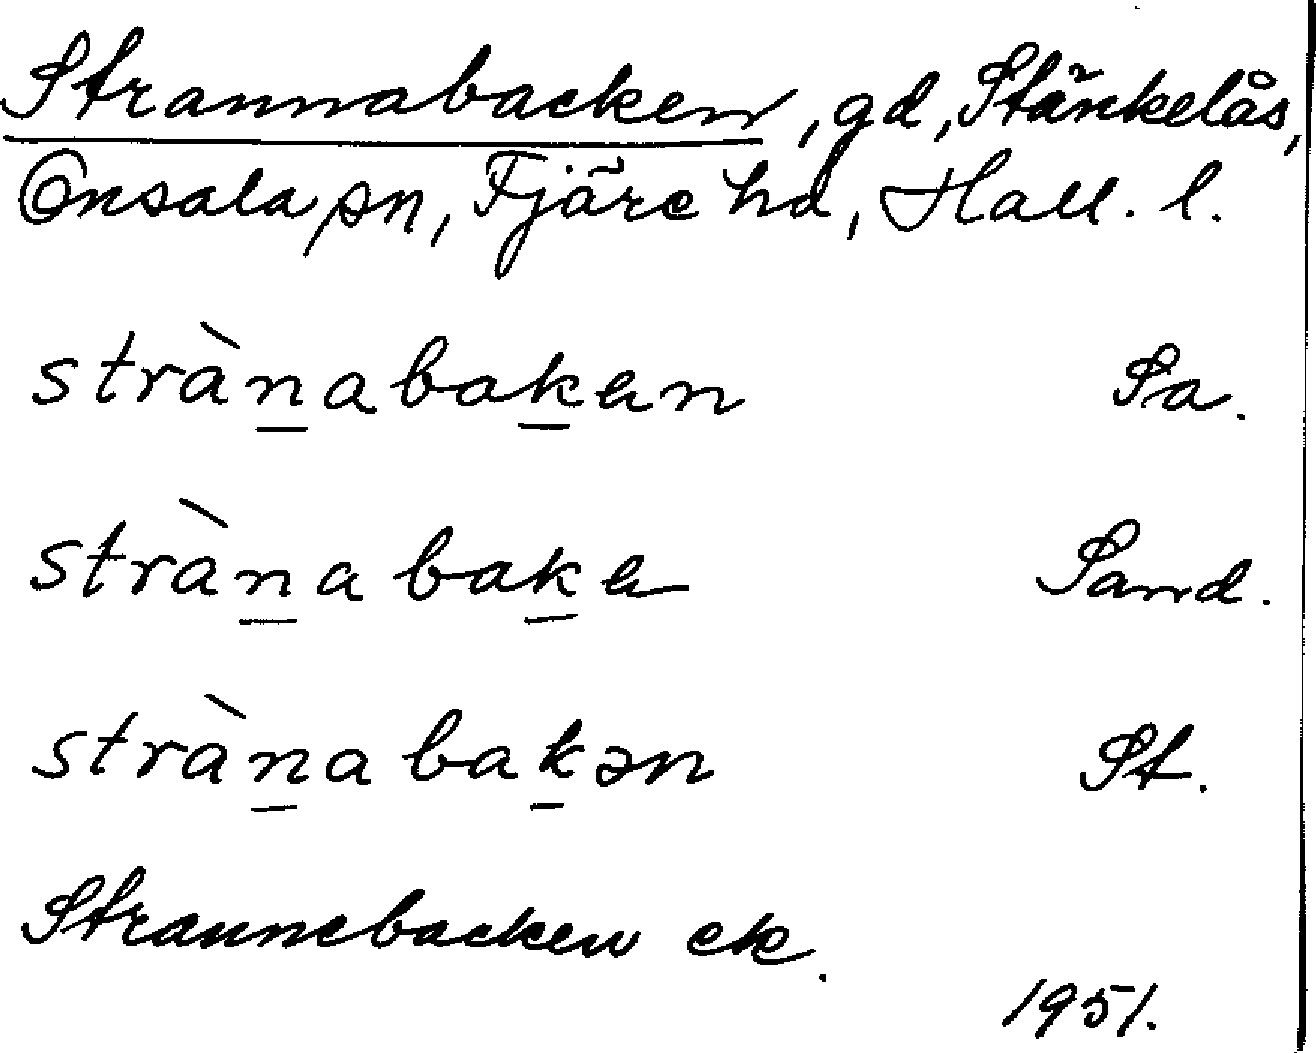 Strannabacken, gd, Stänkelås,
Onsala sn, Fjäre hd, Hall. l.
stràn̲abak̲en Sa.
stràn̲abak̲e Sand.
stràn̲abak̲ən St.
Strannebacken ek.
1951.